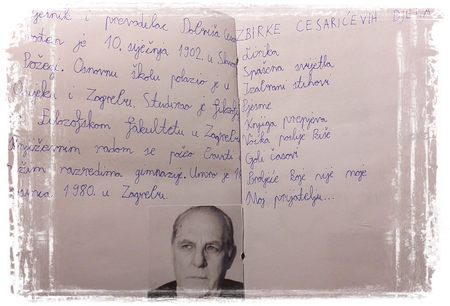 i prevodilac Dobriša
je 10. siječnja 1902. u
Požegi. Osnovnu školu polazio je u
Osijeku i Zagrebu. Studirao je
Filozofskom fakultetu u Zagrebu
književnim radom se počeo baviti
razredima gimnazije. Umro je
1980. u Zagrebu.
ZBIRKE CESARIĆEVIH DJELA
Lirika
Spašena svijetla
Izabrani stihovi
Pjesme
Knjiga prepjeva
Voćka poslije kiše
Goli časovi
Proljeće koje nije moje
Moj prijatelju...